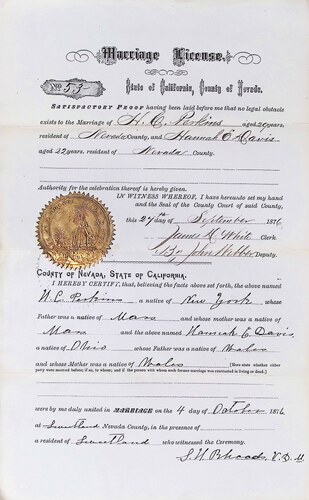 Marriage License.
No 53
State of California, County of Nevada.
SATISFACTORY PROOF having been laid before me that no legal obstacle
exists to the Marriage of H. C. Perkins aged 29 years,
resident of Nevada County, and Hannah E Davis
aged 22 years, resident of Nevada County.
Authority for the celebration thereof is hereby given.
IN WITNESS WHEREOF, I have hereunto set my hand
and the Seal of the County Court of said County,
this 27th day of September 1876
James K White Clerk.
By John Webber Deputy.
COUNTY OF NEVADA, STATE OF CALIFORNIA.
I HEREBY CERTIFY, that, believing the facts above set forth, the above named
H. C. Perkins a native of New York whose
Father was a native of Mass and whose mother was a native of
Mass and the above named Hannah E. Davis,
a native of Ohio whose Father was a native of Wales
and whose Mother was a native of Wales [Here state whether either
party were married before; if so, to whom; and if the person with whom such former marriage was contracted is living or dead.]
were by me duly united in MARRIAGE on the 4 day of October 1876
at Sweetland Nevada County, in and in the presence of
a resident of Sweetland who witnessed the Ceremony.
S. H. Rhoads V.D.M